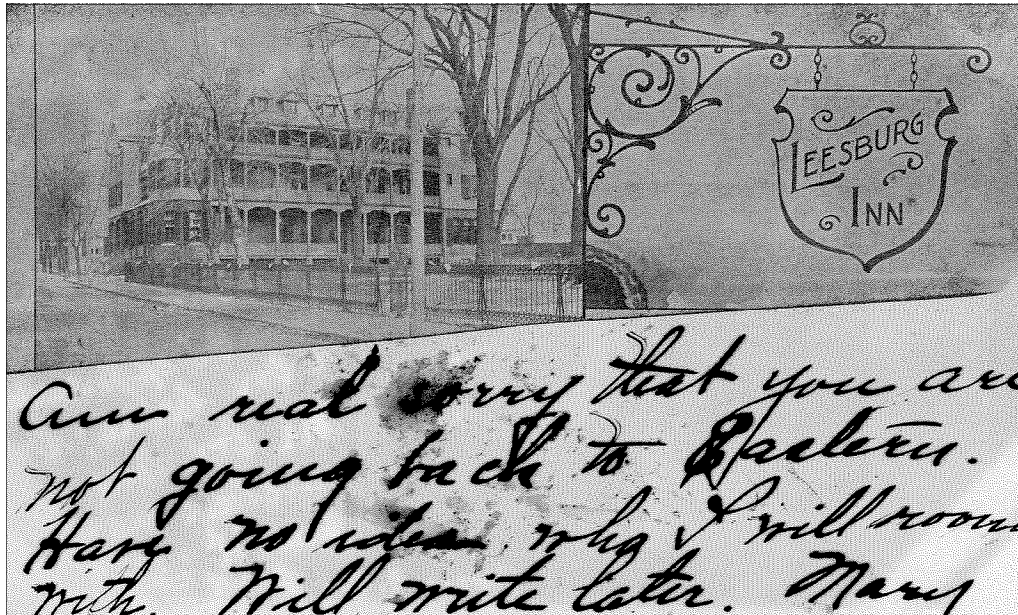 LEESBURG
INN
Am real sorry that you are
not going back to Eastern.
Have no idea who I will room
with. Will write later. Mary